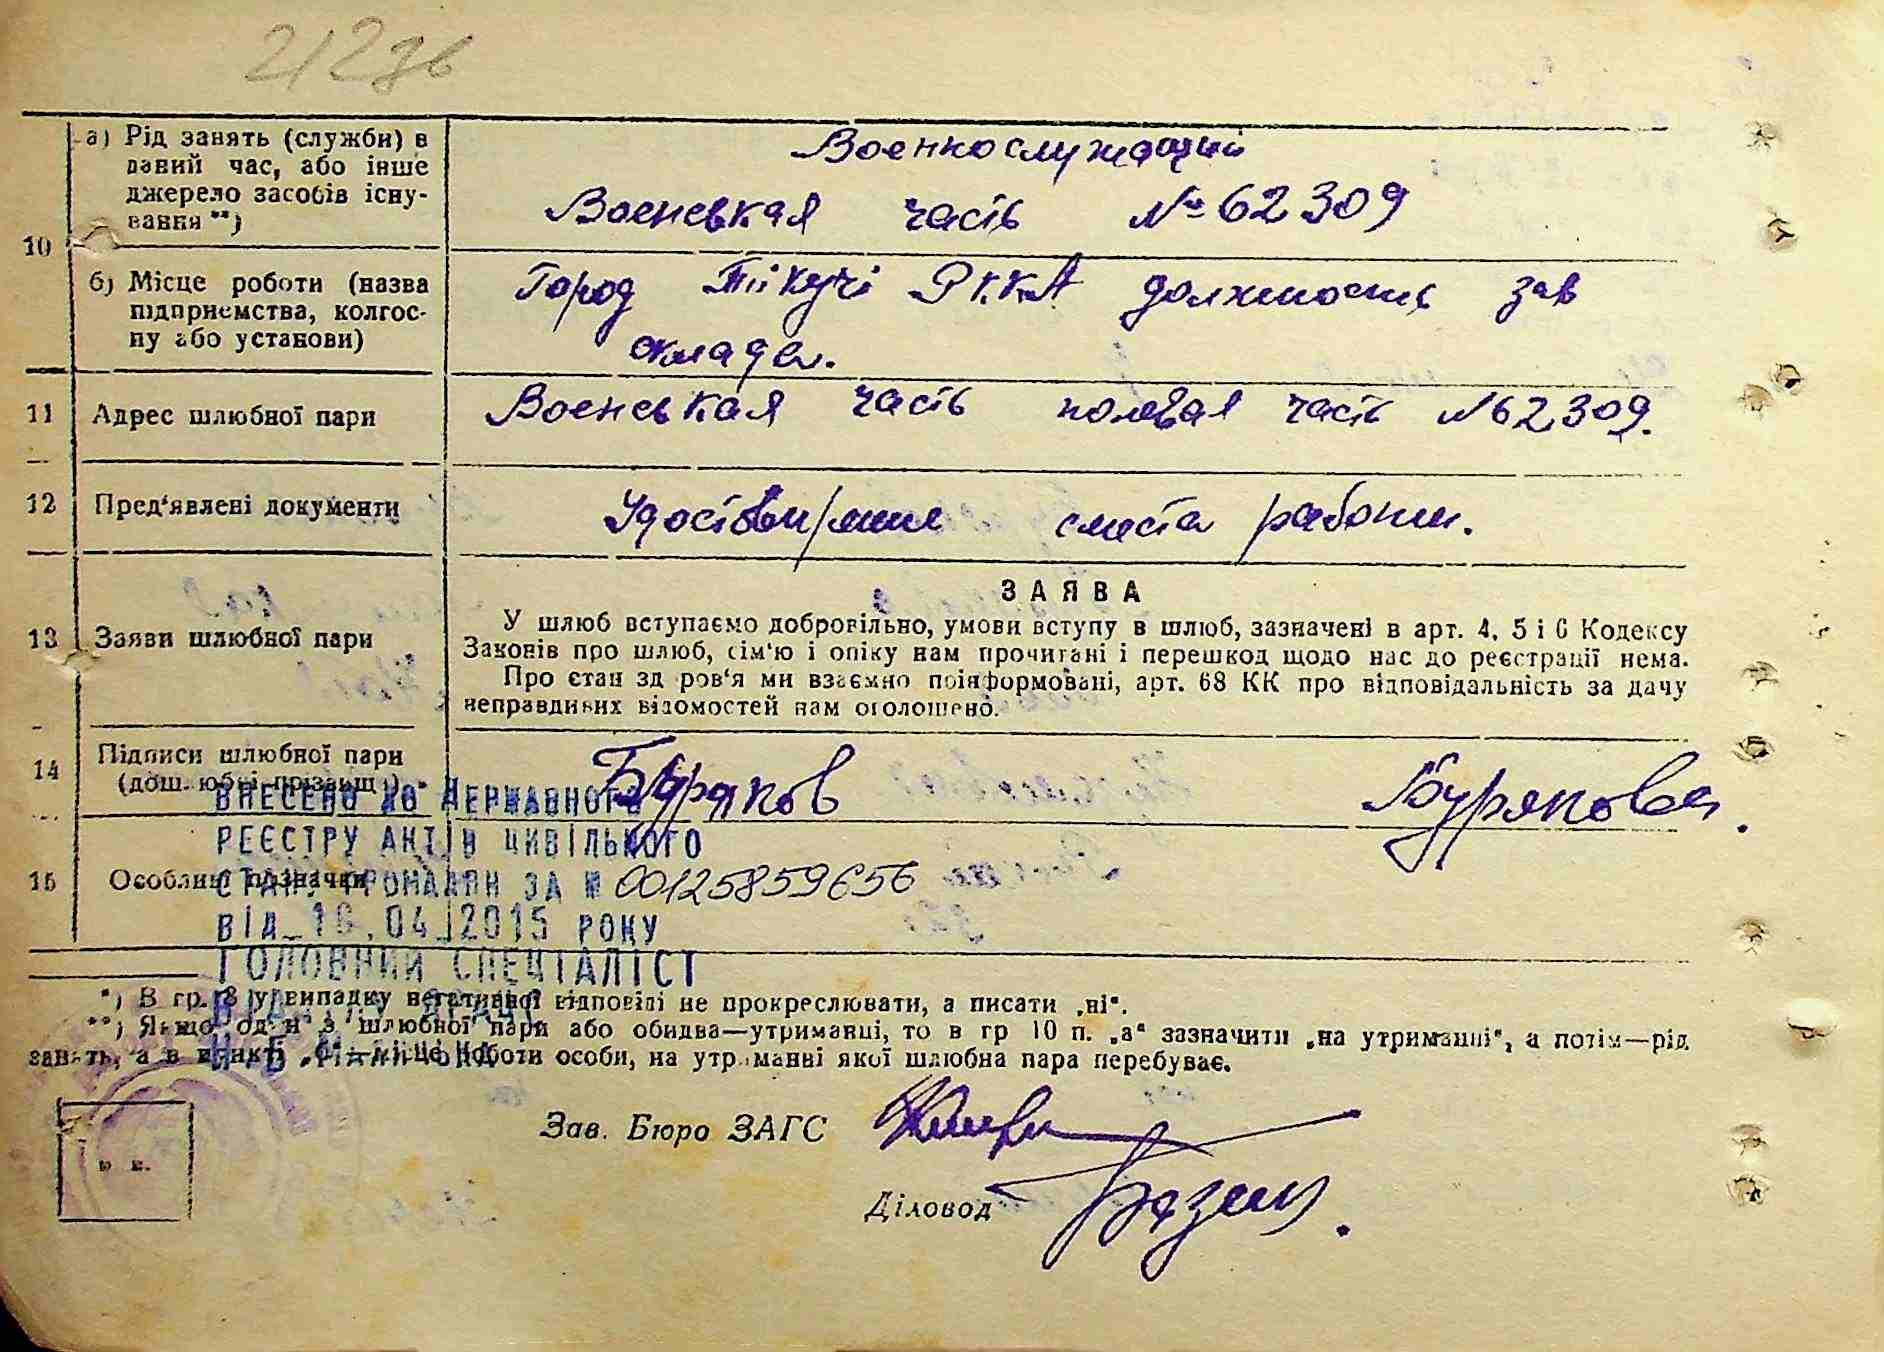 10
а) Рід занять (служби) в
даний час, або інше
джерело засобів існу-
вання **)
Военнослужащий
Воєнськая часть № 62309
б) Місце роботи (назва
підприємства, колгос-
пу або установи)
Город РККА должность зав
склада.
11 Адрес шлюбної пари
Воєнськая часть полевая часть № 62309.
12 Пред'явлені документи
сместа работи.
13 Заяви шлюбної пари
ЗАЯВА
У шлюб вступаємо добровільно, умови вступу в шлюб, зазначені в арт. 4, 5 і 6 Кодексу
Законів про шлюб, сім'ю і опіку нам прочитані і перешкод щодо нас до реєстрації нема.
Про стан здоров'я ми взаємно поінформовані, арт. 68 КК про відповідальність за дачу
неправдивих відомостей нам оголошено.
14 Підписи шлюбної пари
(дошлюбні прізвищ.)
Буряков Бурякова.
ВНЕСЕНО ДО ДЕРЖАВНОГО
РЕЄСТРУ АКТІВ ЦИВІЛЬНОГО
15 Особливі позначки
СТАНУ ГРОМАДЯН ЗА № 00125859656
ВІД 16.04.2015 РОКУ
ГОЛОВНИЙ СПЕЦІАЛІСТ
*) В гр. 8 у випадку негативної відповіді не прокреслювати, а писати „ні".
**) Якщо один з шлюбної пари або обидва—утриманці, то в гр 10 п. „а" зазначити „на утриманні", а потім—рід
занять, а в пункті „б"—місце роботи особи, на утриманні якої шлюбна пара перебуває.
Зав. Бюро ЗАГС
Діловод